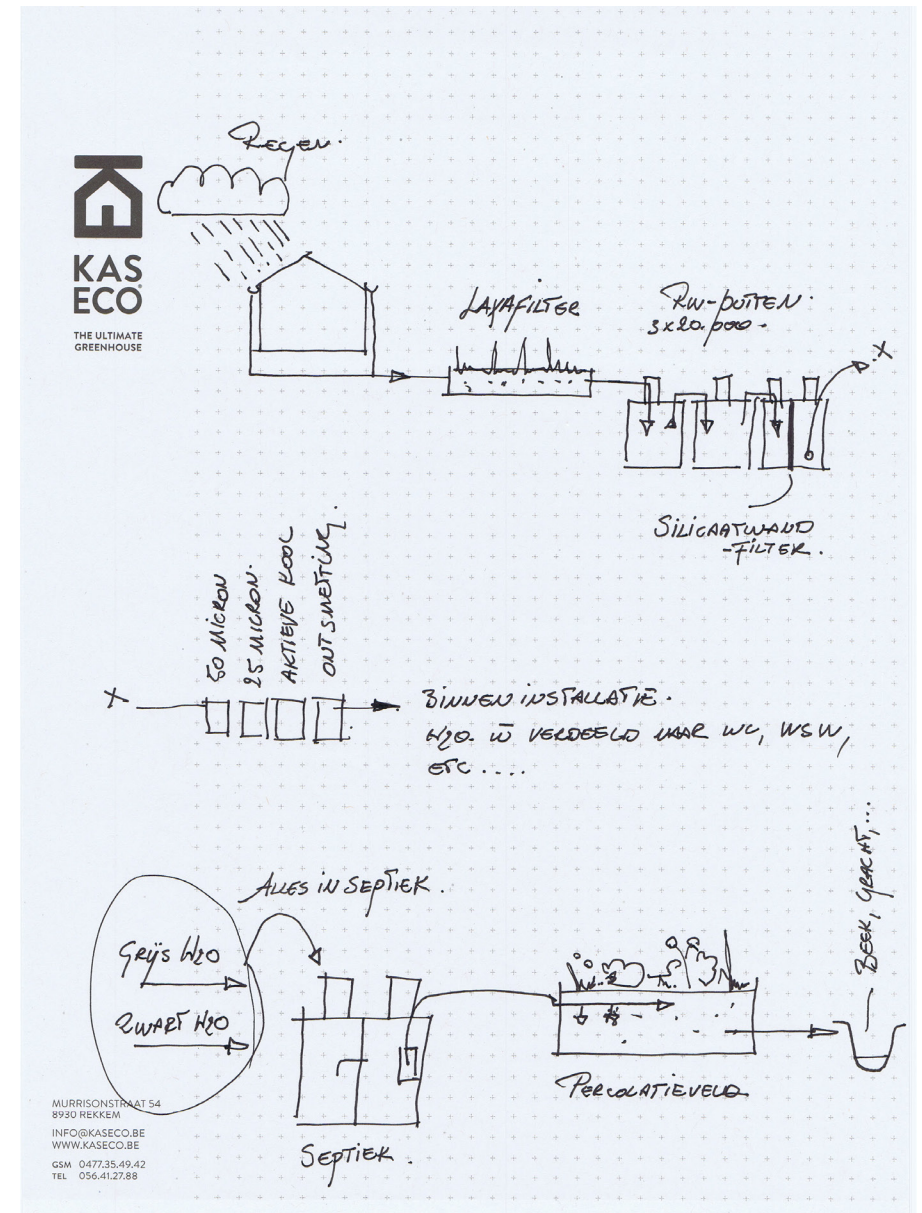 REGEN.
KAS
ECO
THE ULTIMATE
GREENHOUSE
LAVAFILTER
RW-PUTTEN.
3x20.000.
X
SILICAATWAND
-FILTER.
50 MICRON
25 MICRON.
AKTIEVE KOOL
ONTSMETTING.
X
BINNENINSTALLATIE.
H2O. W̄ VERDEELD NAAR WC, WSW,
ETC....
ALLES IN SEPTIEK.
GRIJS H2O
ZWART H2O
BEEK, GRACHT,...
PERCOLATIEVELD
SEPTIEK.
MURRISONSTRAAT 54
8930 REKKEM
INFO@KASECO.BE
WWW.KASECO.BE
GSM 0477.35.49.42
TEL 056.41.27.88